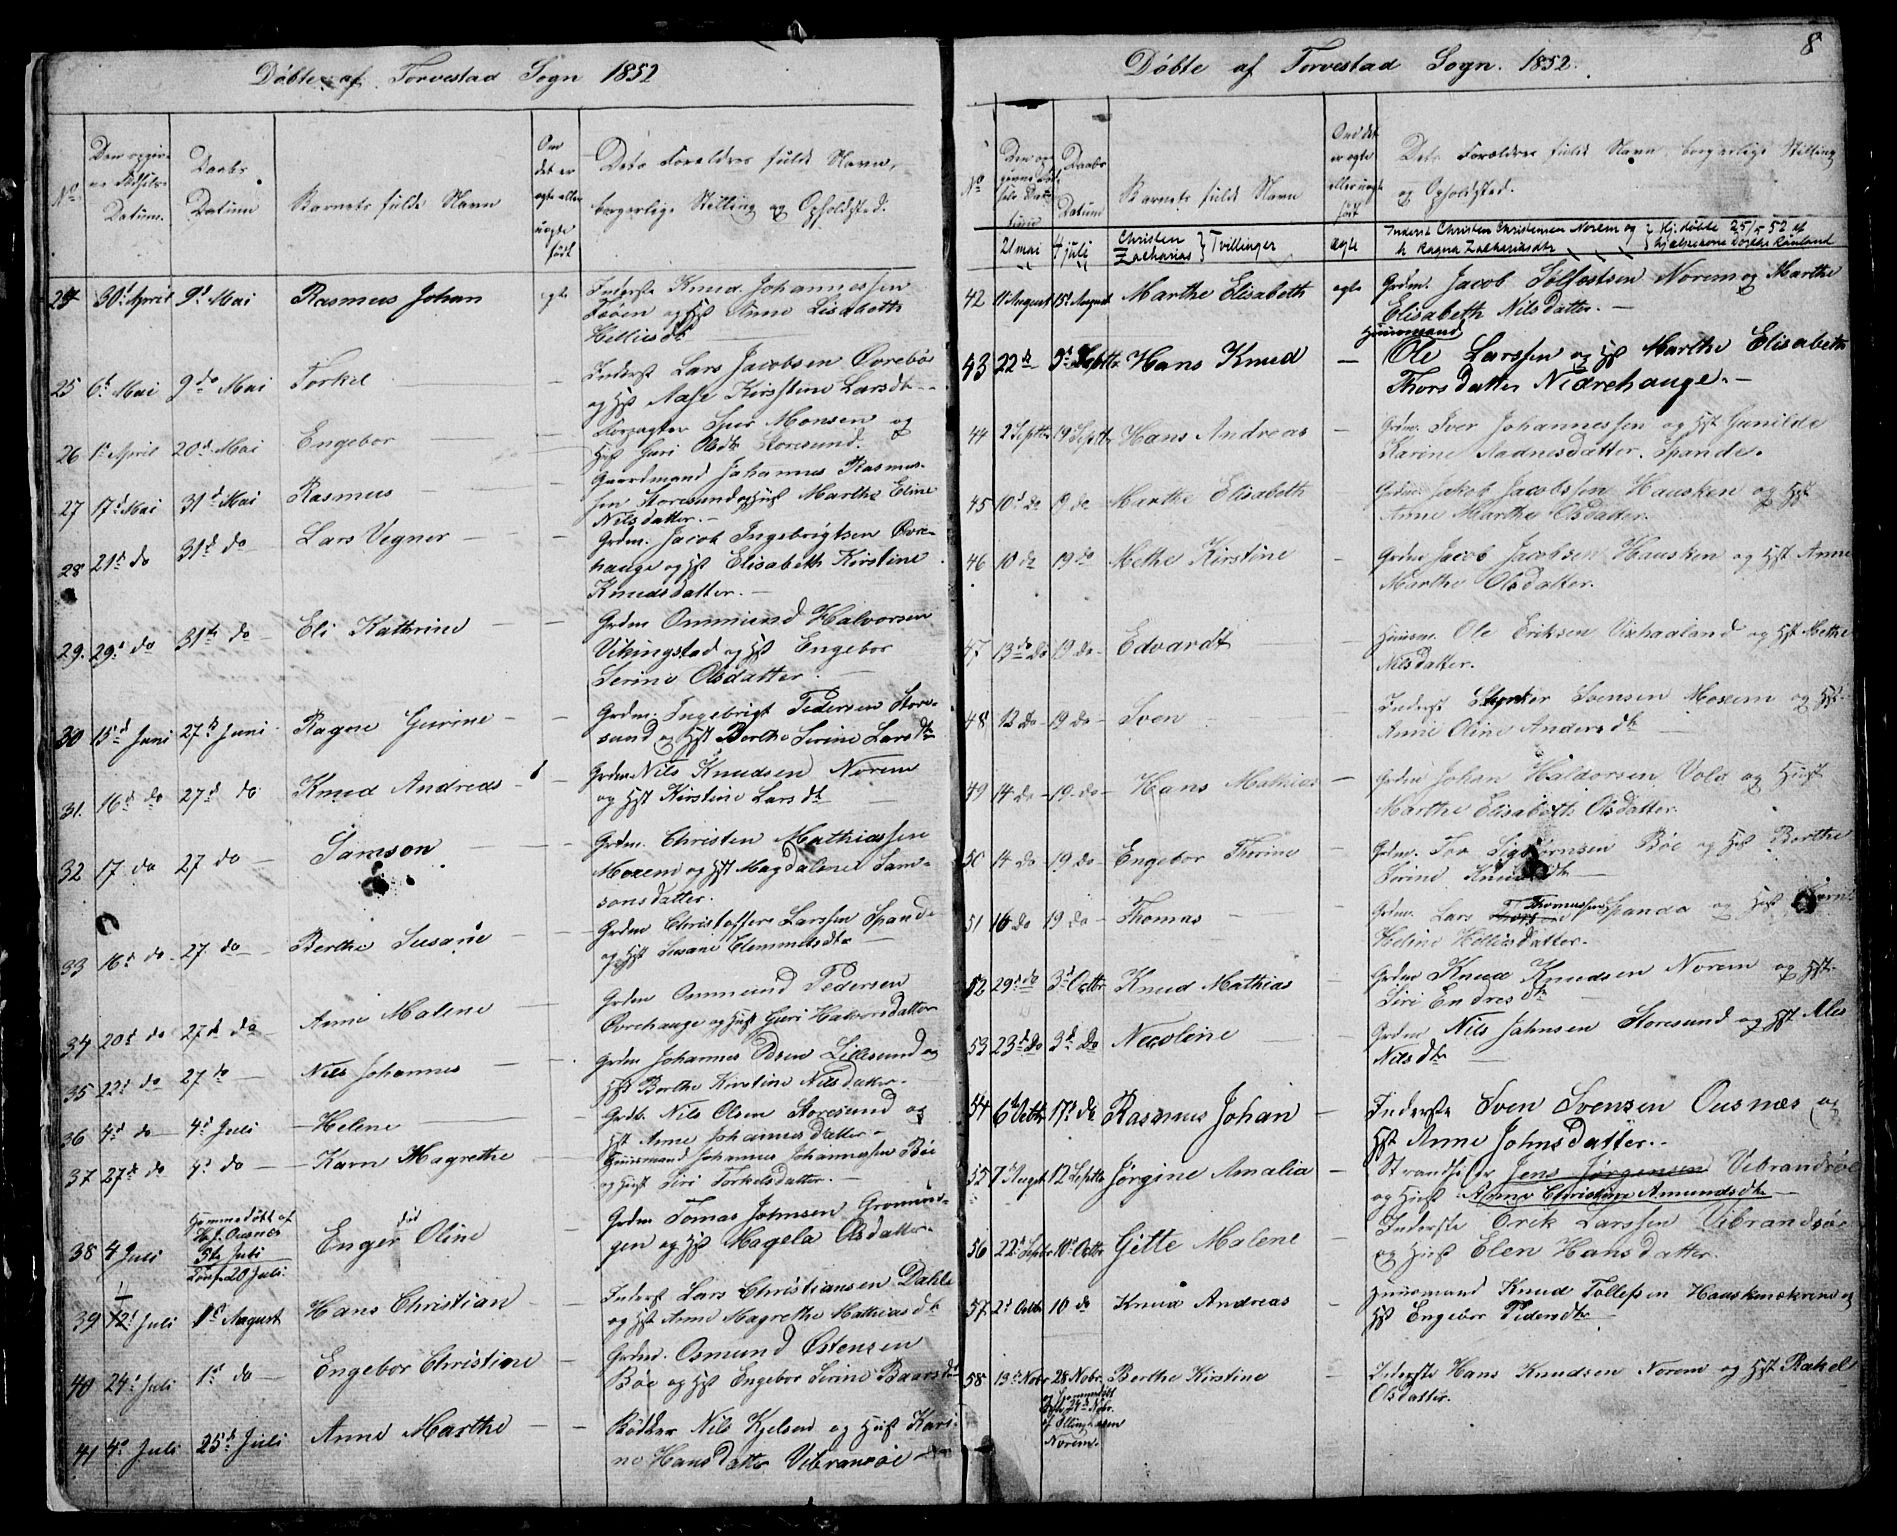 Døbte af Torvestad Sogn 1852
No
Datum
Daabs
Datum
Barnets fulde Navn
Om
det er
ægte eller
uægte
født
Dets Forældres fulde Navn,
borgerlige Stilling og Opholdsted.
24 30t April 9d Mai Rasmus Johan egte Inderste Knud Johannessen
og Hst Anne Lisabeth
25 6t Mai 9de Mai Torkel — Inderst Lars Jacobsen Øvrebø
og Hst Aase Kirstine Larsdtr
26 1t April 20d Mai Engebor — Monsen og
Hst Guri Olsdtr Storesund.
27 17d Mai 31d Mai Rasmus — Gaardmand Johannes Rasmus-
sen Storesund og Hust Marthe Eline
Nilsdatter.
28 21d do 31d do Lars Vegner — Grdm. Jacob Ingebrigtsen Øvre-
hauge og Hst Elisabeth Kirstine
Knudsdatter.
29. 29d do 31te do Eli Kathrine — Grdm Ommund Halvorsen
Vikingstad og Hst Engebor
Serine Olsdatter
30 15d Juni 27de Juni Ragne Gurine — Grdm. Ingebrigt Pedersen Store-
sund og Hst Berthe Serine Larsdtr
31. 16d do 27d do Knud Andreas — Grdm. Nils Knudsen Norem
og Hst Kirstine Larsdtr
32 17 do 27 do Samson — Grdm. Christen Mathiassen
og Hst Magdalene Sam-
sonsdatter.
33 16d do 27. do Berthe Susane — Grdm Christoffer Larssen Spande
og Hst Susane Clemmetsdtr
34 20d do 27de do Anne Malene — Grdm Ommund Pedersen
Øvrehauge og Hust Guri Halvorsdatter
35 22d do 27 do Nils Johannes — Grdm Johannes Olsen Lillesund og
Hst Berthe Kirstine Nilsdatter.
36 4d do 4d Juli Helene — Grdb. Nils Olsen Storesund og
Hst Anne Johannesdatter
37 27de do 4d do Karn Magrethe — Huusmand Johannes Johannessen Bøe
og Hust Siri Torkelsdatter.
38 4 Juli Hjemmedøbt af
5te Juli
20 Juli.
død
Enger Oline Grdm. Tomas Johnsen
og Hst Magela Olsdatter
39 12t Juli 1st August Hans Christian — Inderst Lars Christiansen Dahle
og Hst Anne Magrethe Mathiasdtr
40 24d Juli 1st do Engebor Christine — Grdm. Osmund Østensen
Bøe og Hst Engebor Serine Baarsdtr
41 4d Juli 25de Juli Anne Marthe — Bødker Nils Kjelsen og Hust Kari-
ne Hansdatter Vibrandsøe
8
Døbte af Torvestad Sogn. 1852.
No
Daabs
Datum
Barnets fulde Navn
Om det
er ægte
eller uægte
født
Dets Forældres fulde Navn, borgerlige Stilling
og Opholdsted.
21 mai 4 juli Christen
Zacharias } Tvillinger ægte Inderst Christen Christensen Norem og
h Ragna Zachariasdtr } Hj. døbte 25/5 52 af
hjælpekone Dorthe Rønland
42 11 August 15d August Marthe Elisabeth egte Grdm. Jacob Solfestsen Norem og Marthe
Elisabeth Nilsdatter.
43 22de 5d Septbr Hans Knud — Huusmand
Ole Larssen og Hst Marthe Elisabeth
Thorsdatter Nedrehauge.
44 2 Septbr 19 Septbr Hans Andreas Grdm. Iver Johannessen og Hst Gunilde
Karine Aadnesdatter. Spande.
45 10d do 19 do Marthe Elisabeth Grdm. Jakob Jacobssen Hausken og Hst
Anne Marthe Olsdatter.
46 10 do 19 do Methe Kirstine — Grdm Jacob Jacobsen Hausken og Hst Anne
Marthe Olsdatter.
47 13de do 19 do Edvardt — Huusm. Ole Eriksen Vixhaaland og Hst Methe
Nilsdatter.
48 12 do 19 do Sven Inderst Svensen og Hst
Anne Oline Andersdtr
49 14 do 19 do Hans Mathias — Grdm Johan Haldorsen Vold og Hust
Marthe Elisabeth Olsdatter
50 14 do 19 do Engebor Thorine — Grdm. Bøe og Hst Berthe
Serine Knudsdtr
51 16 do 19 do Thomas — Grdm. Lars Thomassen Spande og Hst
Heline Helliesdatter.
52 29de do 3d Octbr Knud Mathias — Grdm Knud Knudsen Norem og Hst
Siri Endresdtr
53 23de do 3d do Nicoline — Grdm Nils Johnsen Storesund og Hst Ales
Nilsdtr
54 6te Octbr 17d do Rasmus Johan — Inderste Sven Svensen Ousnæs og
Hst Anne Johnsdatter.
55 7 August 12 Septbr Jørgine Amalia Strandsidder Jens Jørgensen Vibrandsøe
og Hust Anne Christine Amundsdtr
56 22d Septbr 10d Octbr Gitte Malene — Inderste Erik Larssen Vibrandsøe
og Hust Elen Hansdatter.
57 2d Octbr 10 do Knud Andreas — Huusmand Knud Tollefsen og
Hst Engebor Pedersdtr
58 13d Nobr 28 Nobr. Berthe Kirstine — Inderste Hans Knudsen Norem og Hst Rakel
Olsdatter.
Hjemmedøbt
24d Nobr.
Norem.